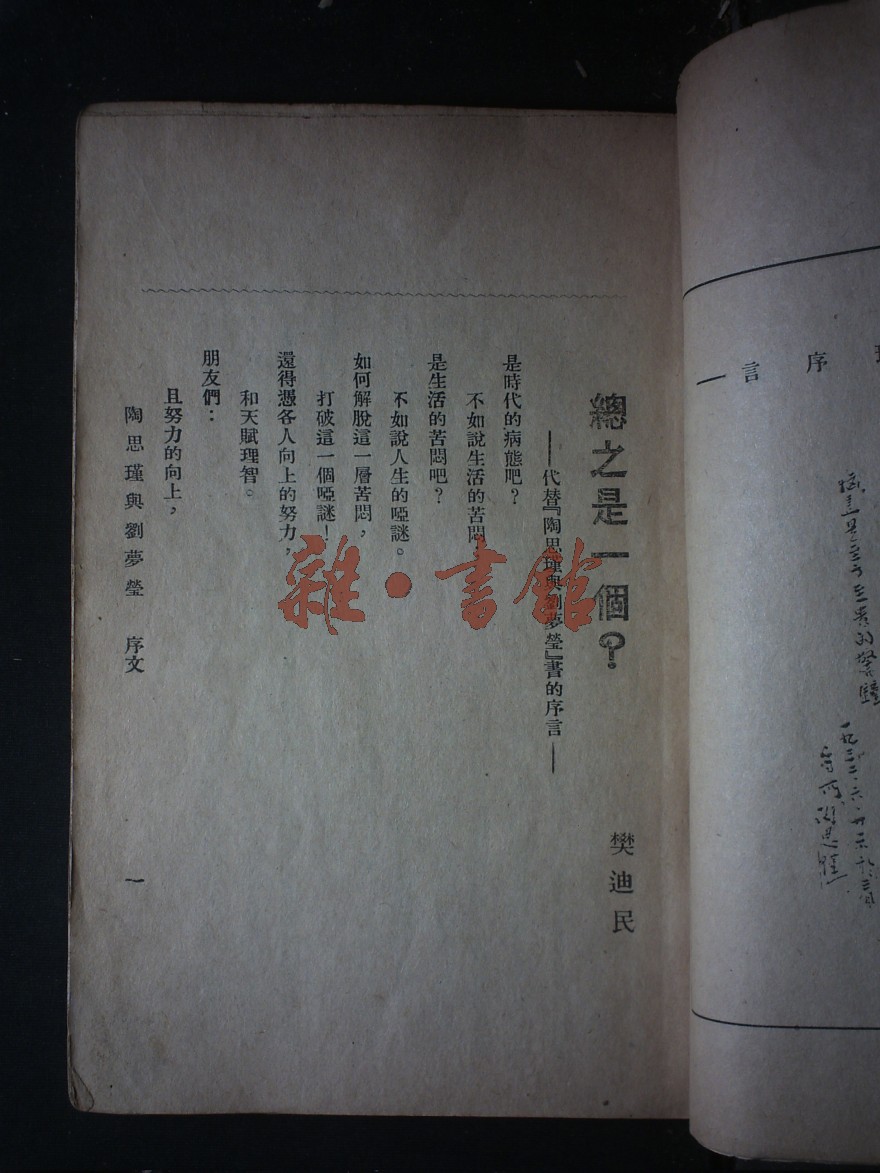 總之是一個?
樊迪民
——代替『陶思瑾與劉夢瑩』書的序言——
是時代的病態吧?
不如說生活的苦悶
是生活的苦悶吧?
不如說人生的啞謎。
如何解脫這一層苦悶,
打破這一個啞謎!
還得憑各人向上的努力,
和天賦理智。
朋友們:
且努力的向上,
陶思瑾與劉夢瑩 序文
一
雜·書館
序言
一